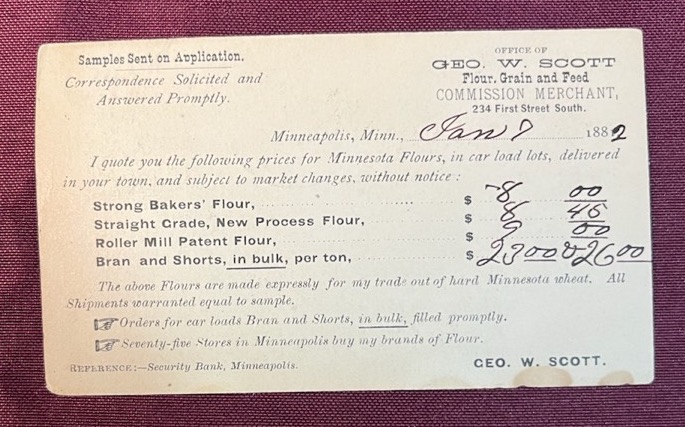 Samples Sent on Application.
Correspondence Solicited and
Answered Promptly.
OFFICE OF
GEO. W. SCOTT
Flour, Grain and Feed
COMMISSION MERCHANT,
234 First Street South.
Minneapolis, Minn., Jan 7 1882
I quote you the following prices for Minnesota Flours, in car load lots, delivered
in your town, and subject to market changes, without notice :
Strong Bakers' Flour, $ 8 00
Straight Grade, New Process Flour, $ 8 45
Roller Mill Patent Flour, $ 9 00
Bran and Shorts, in bulk, per ton, $ 23 00 & 26 00
The above Flours are made expressly for my trade out of hard Minnesota wheat. All
Shipments warranted equal to sample.
☞ Orders for car loads Bran and Shorts, in bulk, filled promptly.
☞ Seventy-five Stores in Minneapolis buy my brands of Flour.
REFERENCE:—Security Bank, Minneapolis.
GEO. W. SCOTT.